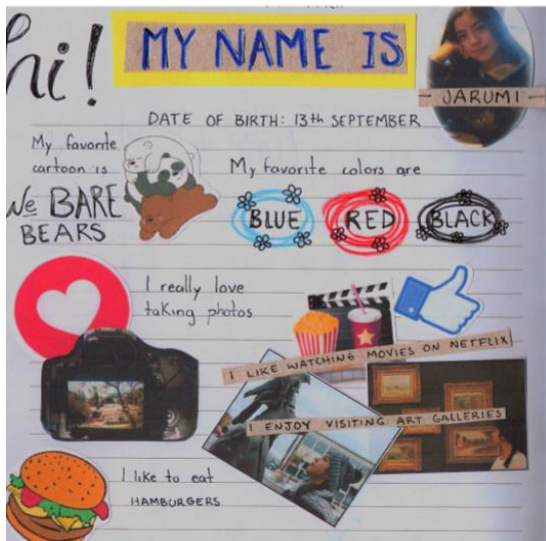 hi!
MY NAME IS
- JARUMI -
DATE OF BIRTH: 13th SEPTEMBER
My favorite
cartoon is
We BARE
BEARS
My favorite colors are
BLUE RED BLACK
I really love
taking photos
I LIKE WATCHING MOVIES ON NETFLIX
I ENJOY VISITING ART GALLERIES
I like to eat
HAMBURGERS